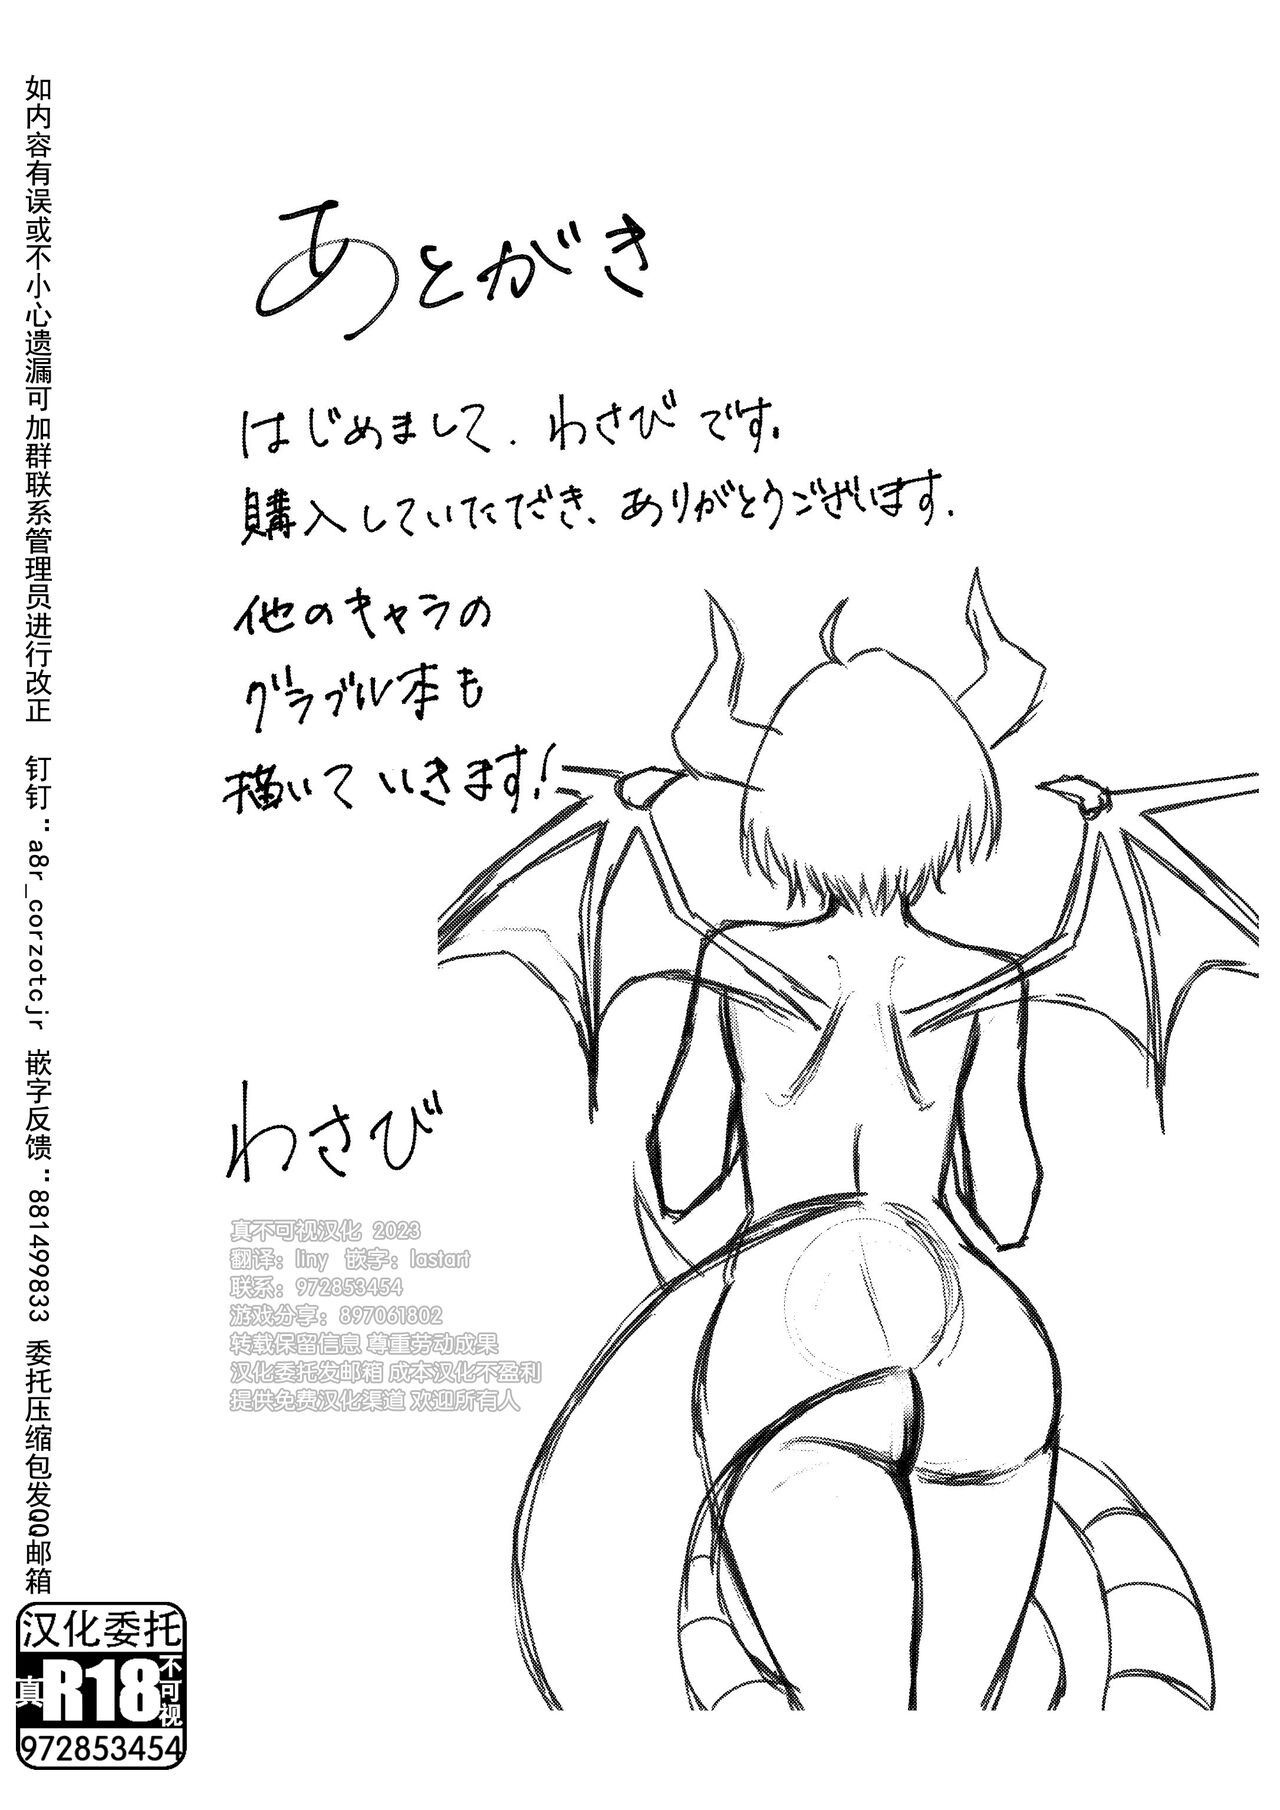 あとがき
はじめまして、わさびです。
購入していただき、ありがとうございます。
他のキャラの
グラブル本も
描いていきます!
わさび
真不可视汉化 2023
翻译：liny 嵌字：lastart
联系：972853454
游戏分享：897061802
转载保留信息 尊重劳动成果
汉化委托发邮箱 成本汉化不盈利
提供免费汉化渠道 欢迎所有人
如内容有误或不小心遗漏可加群联系管理员进行改正 钉钉"a8r_corzotcjr 嵌字反馈"881499833 委托压缩包发QQ邮箱
汉化委托
真R18不可视
972853454